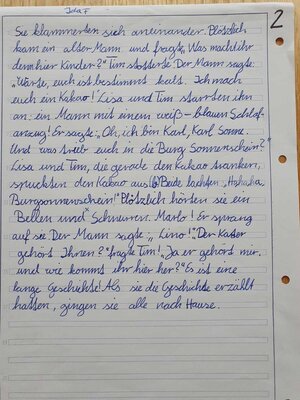 Ida F
2
Sie klammerten sich aneinander. Plötzlich
kam ein alter Mann und fragte „Was macht ihr
denn hier Kinder?" Tim stotterte Der Mann sagte:
„Wartet, euch ist bestimmt kalt. Ich mach
euch ein Kakao! Lisa und Tim starrten ihn
an: ein Mann mit einem weiß-blauen Schlaf-
anzug! Er sagte „Oh, ich bin Karl, Karl Sonne.
Und was trieb euch in die Burg Sonnenschein?"
Lisa und Tim, die gerade den Kakao tranken,
spuckten den Kakao aus Beide lachten „Hahaha
Burgsonnenschein!" Plötzlich hörten sie ein
Bellen und Schnurren. Marlo! Er sprang
auf sie Der Mann sagte: „Lino!" „Der Kater
gehört Ihnen?" fragte Tim! „Ja er gehört mir,
und wie kommt ihr hier her?" Es ist eine
lange Geschichte! Als sie die Geschichte erzählt
hatten, gingen sie alle nach Hause.